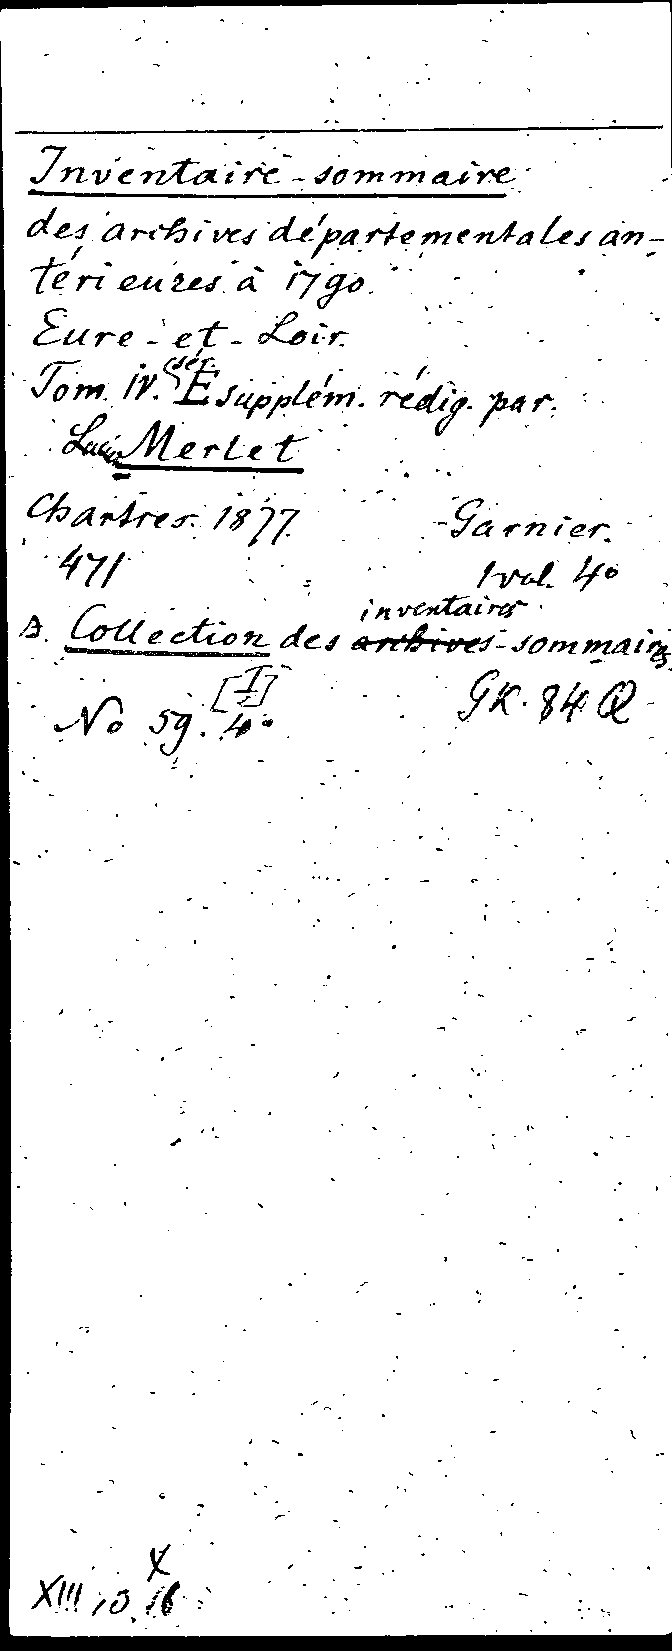 Inventaire-sommaire
des archives départementales an-
térieures à 1790.
Eure-et-Loir.
Tom. IV. sér. E supplém. rédig. par.
Lucien Merlet
Chartres. 1877. Garnier.
471 1 vol. 4o
inventaires
Collection des archives-sommaires
[I]
No 59. 4o GK. 84 Q
X
XIII 10. 16